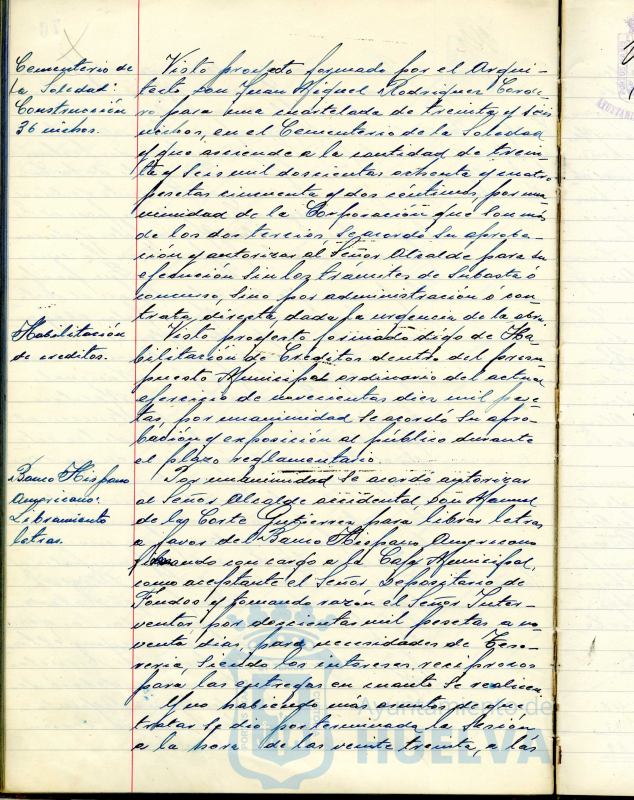 Cementerio de
la Soledad:
Construcción
36 nichos.
Visto proyecto formado por el Arqui-
tecto Don Juan Miguel Rodriguez Cordo-
ro para una cuartelada de treinta y seis
nichos, en el Cementerio de la Soledad
y que asciende a la cantidad de trein-
ta y seis mil doscientas ochenta y cuatro
pesetas cincuenta y dos céntimos, por una-
nimidad de la Corporación que son más
de los dos tercios, se acordó su aproba-
ción y autorizar al Señor Alcalde para su
ejecución sin los trámites de Subasta ó
concurso, sino por administración ó con-
trata directa, dada la urgencia de la obra.
Habilitación
de creditos.
Visto proyecto formado digo de Ha-
bilitación de Créditos dentro del presu-
puesto Municipal ordinario del actual
ejercicio de novecientas diez mil pese-
tas, por unanimidad se acordó su apro-
bación y exposición al público durante
el plazo reglamentario.
Banco Hispano
Americano:
Libramiento
letras.
Por unanimidad se acordó autorizar
al Señor Alcalde accidental, Don Manuel
de la Corte Gutierrez, para librar letras
a favor del Banco Hispano Americano
girando con cargo a la Caja Municipal,
como aceptante el Señor Depositario de
Fondos y tomando razón el Señor Inter-
ventor por doscientas mil pesetas a no-
venta dias, para necesidades de Teso-
reria, siendo los intereses reciprocos
para las entregas en cuanto se realicen.
Y no habiendo más asuntos de que
tratar se dió por terminada la sesión
a la hora de las veinte treinta, a las
Ayuntamiento de
HUELVA